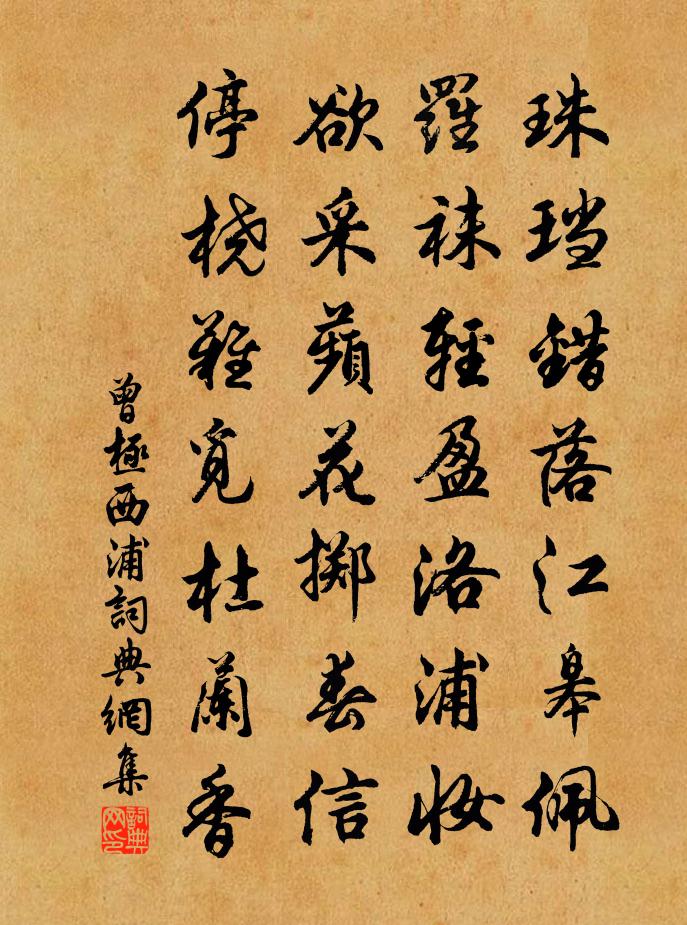 珠璫錯落江皋佩
羅袜輕盈洛浦妝
欲采蘋花擲春信
停橈難覓杜蘭香
曾極西浦詞典網集
詞典网印